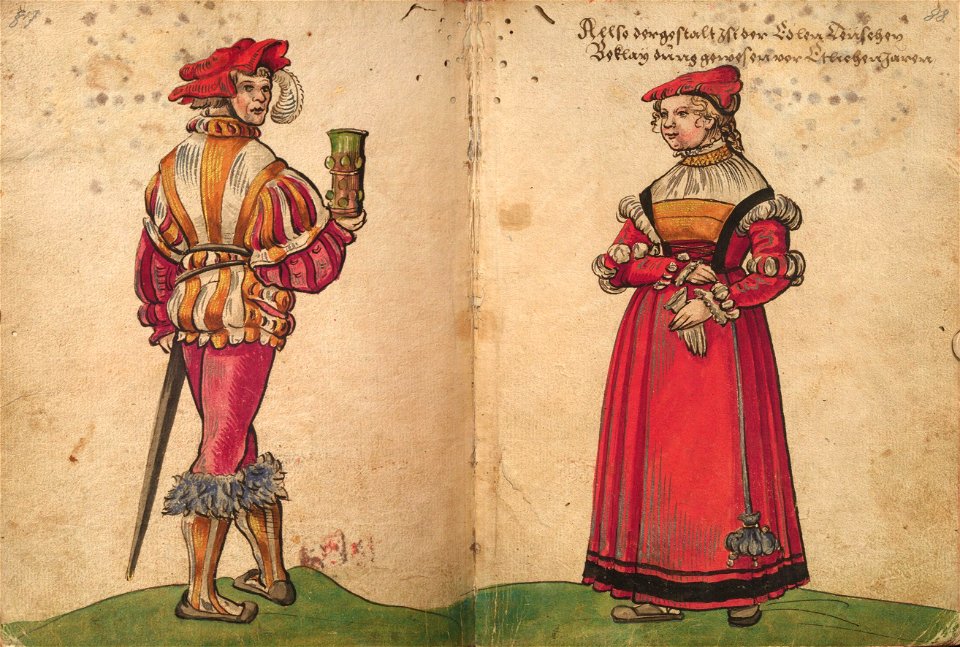 87
88
Allso dergestalt Ist der Edlen
Beklaydung gewesen vor Etlichen Jaren